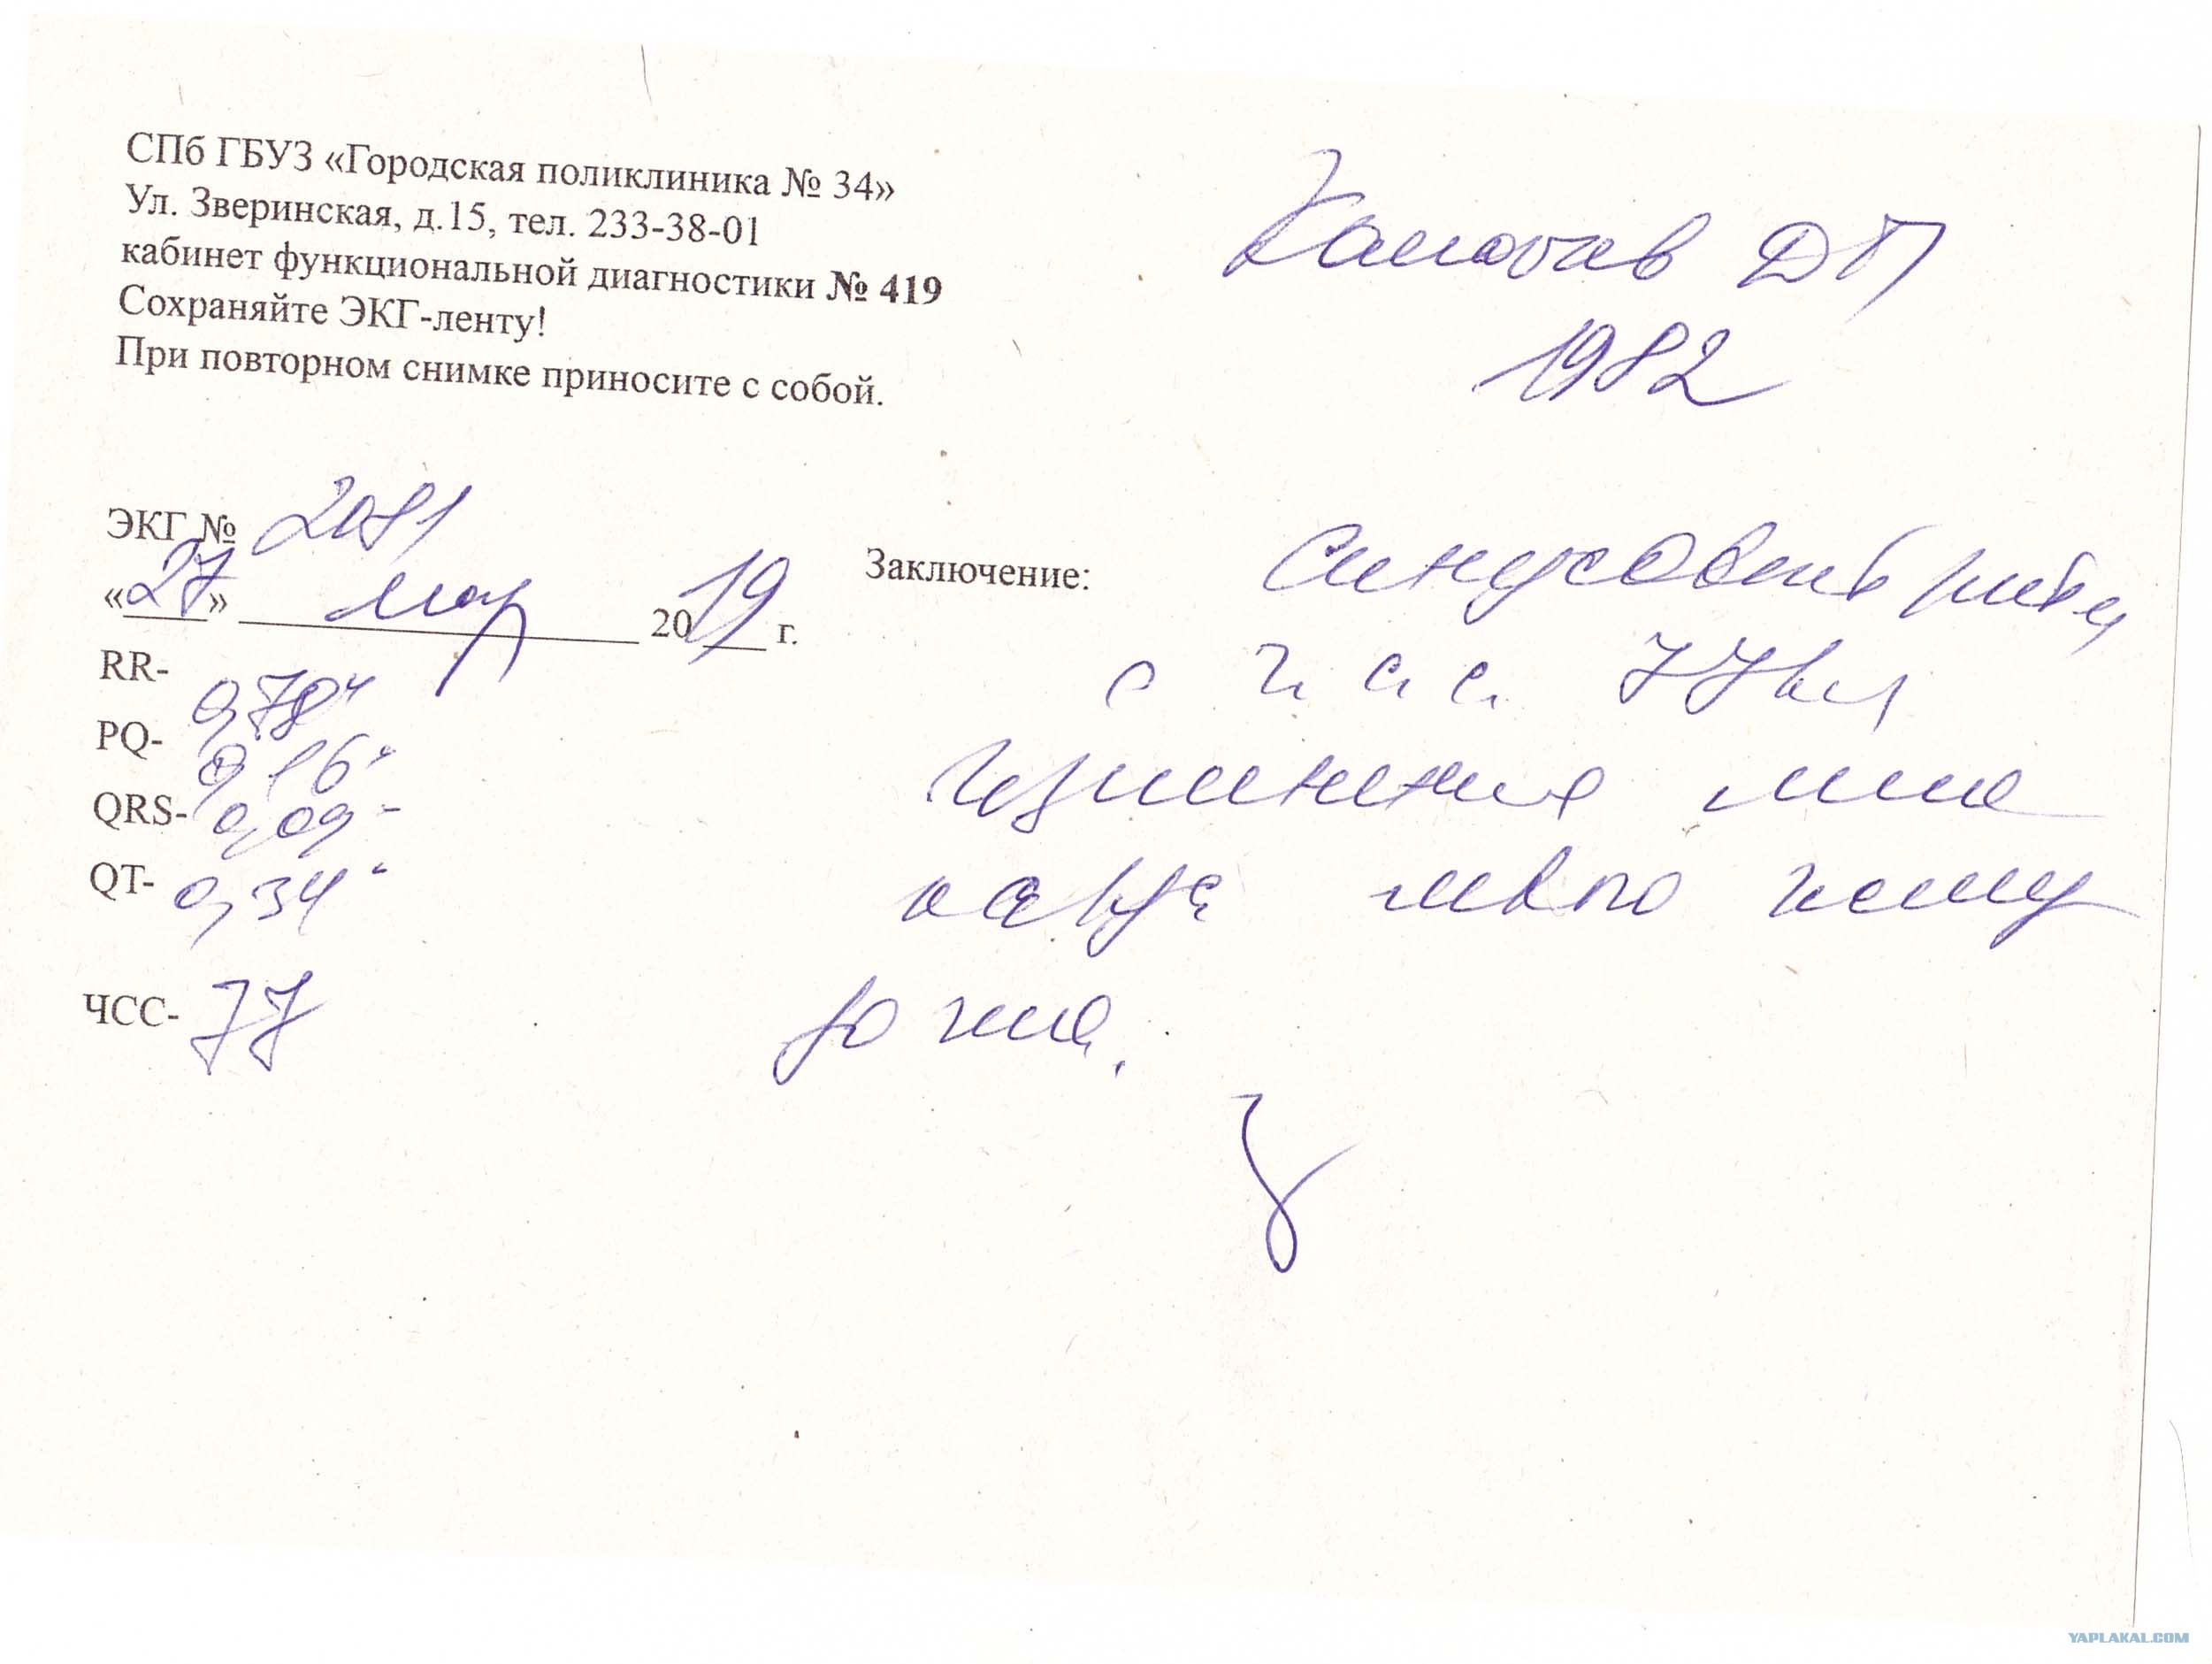 СПб ГБУЗ «Городская поликлиника № 34»
Ул. Зверинская, д.15, тел. 233-38-01
кабинет функциональной диагностики № 419
Сохраняйте ЭКГ-ленту!
При повторном снимке приносите с собой.
ДП
1982
ЭКГ № 2081
«27» мар 2019 г.
RR- 0,78"
PQ- 0,16"
QRS- 0,09"
QT- 0,34"
ЧСС- 77
Заключение: Синусовый ритм
с ч.с.с. 77
Изменения мио
карда левого желу
дочка.
YAPLAKAL.COM